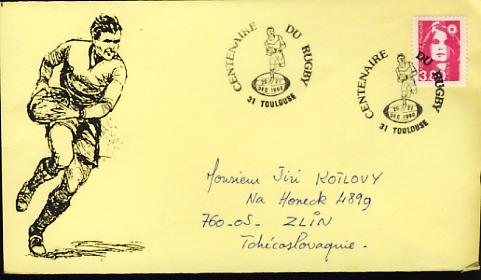 CENTENAIRE DU RUGBY
26 27
DEC 1990
31 TOULOUSE
CENTENAIRE DU RUGBY
26 27
DEC 1990
31 TOULOUSE
3.8
Monsieur Jiri KOTLOVY
Na Honeck 4899
760-05- ZLÍN
Tchécoslovaquie.